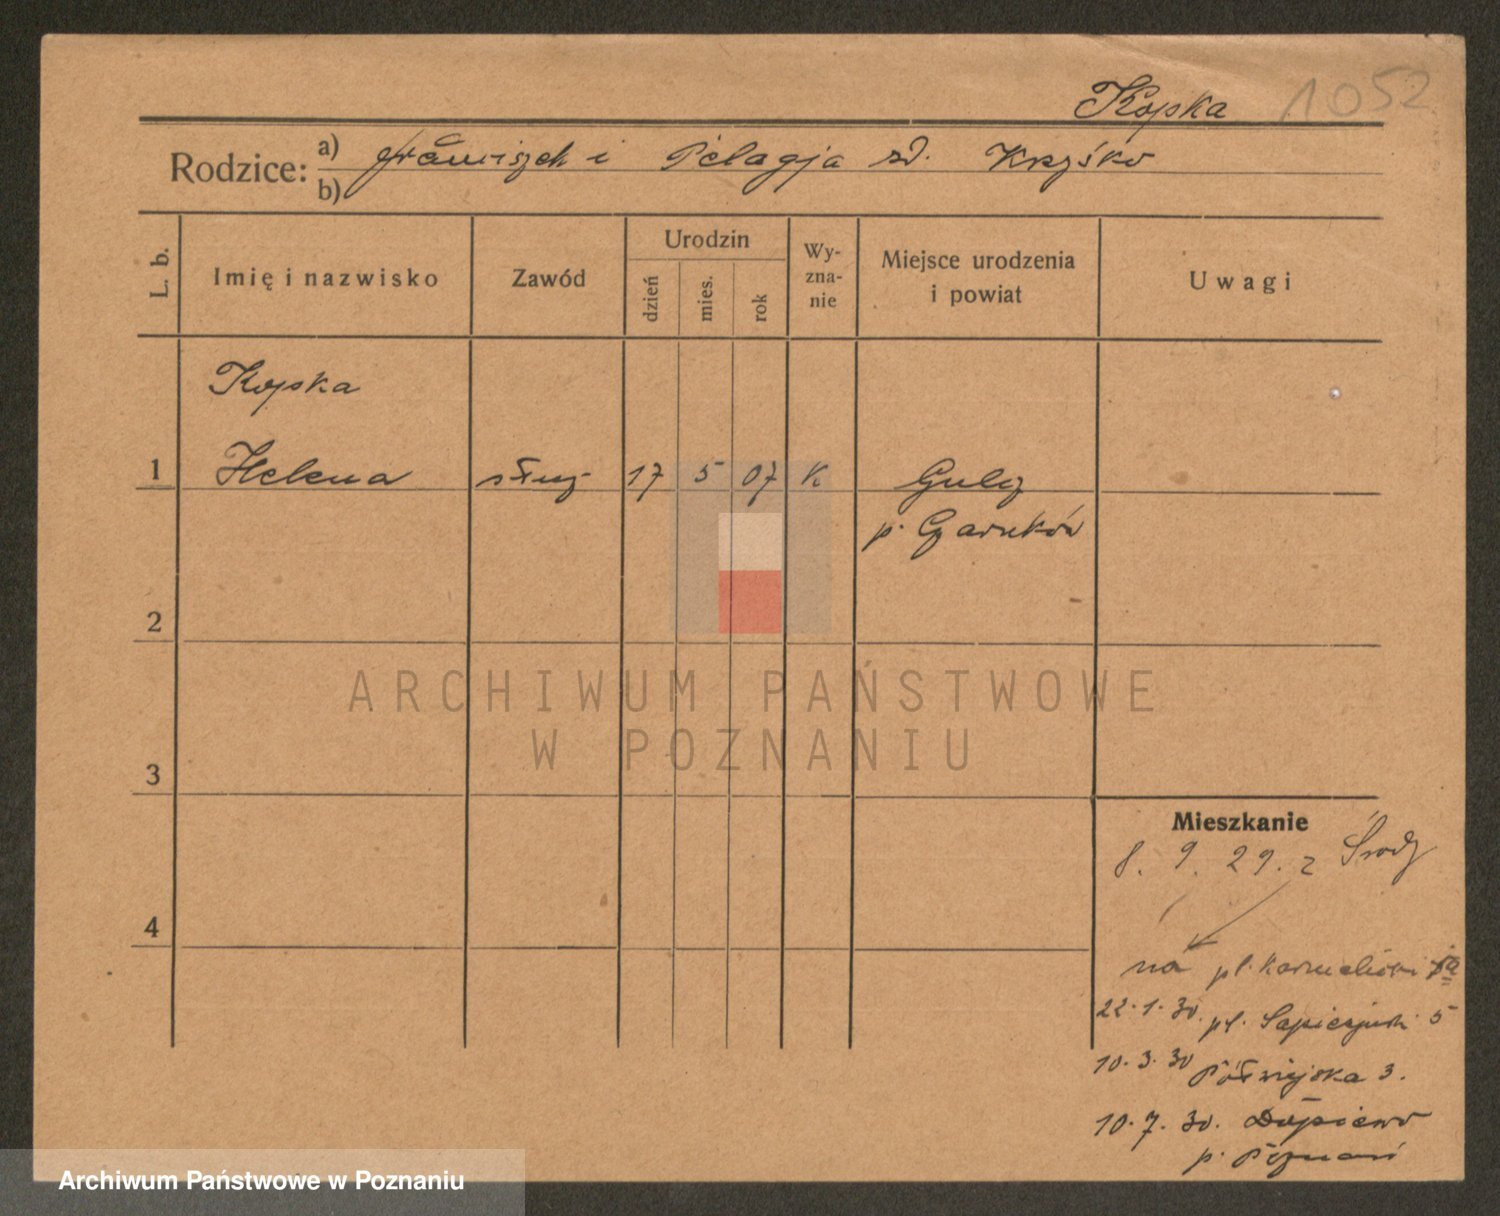 Kopka 1052
Rodzice: a) Franciszek i Pelagja zd. Krzyśko
b)
L. b.
Imię i nazwisko
Zawód
Urodzin
dzień
mies.
rok
Wy-
zna-
nie
Miejsce urodzenia
i powiat
Uwagi
Kopka
1 Helena służ. 17 5 07 k Gulcz
p. Czarnków
2
3
4
ARCHIWUM PAŃSTWOWE
W POZNANIU
Mieszkanie
8. 9. 29. z Środy
na pl. Karmelicki
22.1.30. pl. Sapieżyński 5
10.3.30 Półwiejska 3.
10.7.30. Dopiewo
p. Poznań
Archiwum Państwowe w Poznaniu